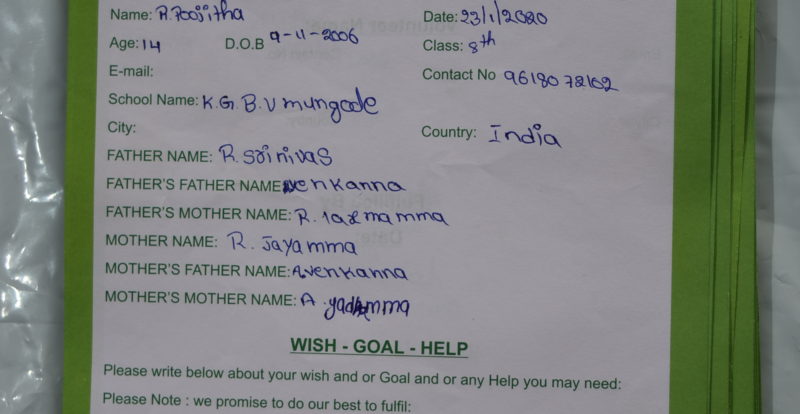 Name: R. Poojitha Date: 23/1/2020
Age: 14 D.O.B 9-11-2006 Class: 8th
E-mail: Contact No 9618078102
School Name: K.G.B.V mungode
City: Country: India
FATHER NAME: R. Srinivas
FATHER'S FATHER NAME: venkanna
FATHER'S MOTHER NAME: R. laxmamma
MOTHER NAME: R. Jayamma
MOTHER'S FATHER NAME: A.venkanna
MOTHER'S MOTHER NAME: A.
WISH - GOAL - HELP
Please write below about your wish and or Goal and or any Help you may need:
Please Note : we promise to do our best to fulfil: